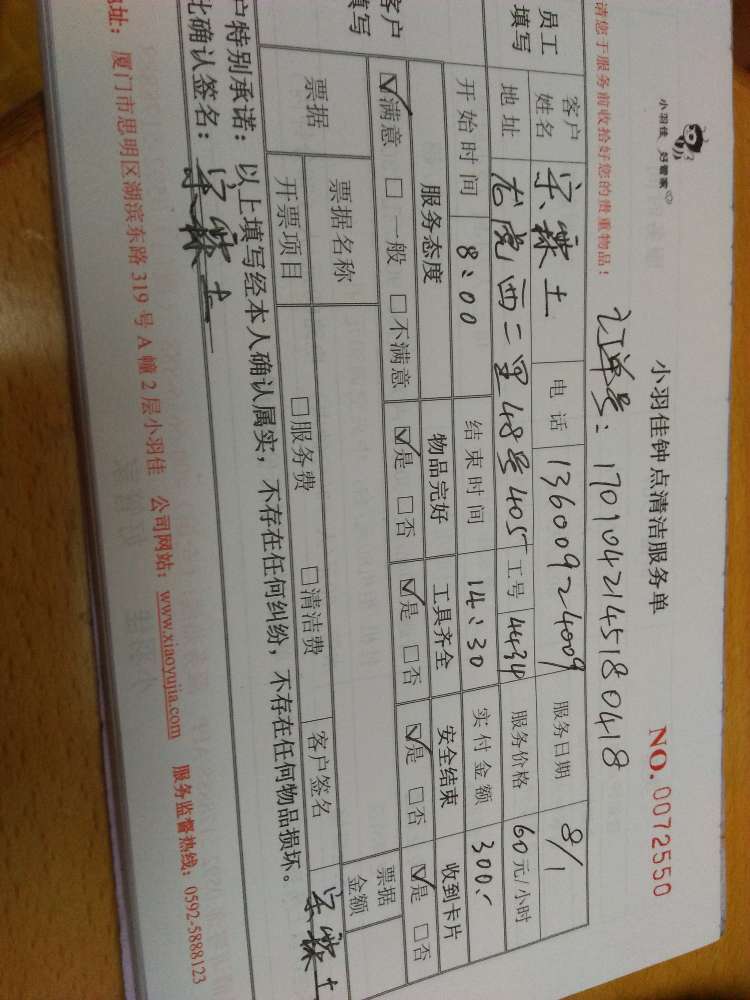 小羽佳 好管家
小羽佳钟点清洁服务单
NO. 0072550
请您于服务前收拾好您的贵重物品!
订单号: 1701042145180418
员工填写
客户姓名 宋霖土 电话 13600924009 服务日期 8/1
地址 龙虎西二里48号405 工号 4434 服务价格 60元/小时
开始时间 8:00 结束时间 14:30 实付金额 300.
客户填写
服务态度 物品完好 工具齐全 安全结束 收到卡片
☑满意 □一般 □不满意 ☑是 □否 ☑是 □否 ☑是 □否 ☑是 □否
票据 票据名称 票据金额
开票项目 □服务费 □清洁费 客户签名 宋霖土
户特别承诺: 以上填写经本人确认属实, 不存在任何纠纷, 不存在任何物品损坏。
此确认签名: 宋霖土
地址: 厦门市思明区湖滨东路319号A幢2层小羽佳 公司网站: www.xiaoyujia.com 服务监督热线: 0592-5888123